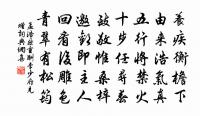 養疾衡檐下
由來浩氣真
五行將禁火
十步任尋春
致敬惟桑梓
邀歡即主人
回看後彫色
青翠有松筠
孟浩然重酬李少府見
贈詞典網集